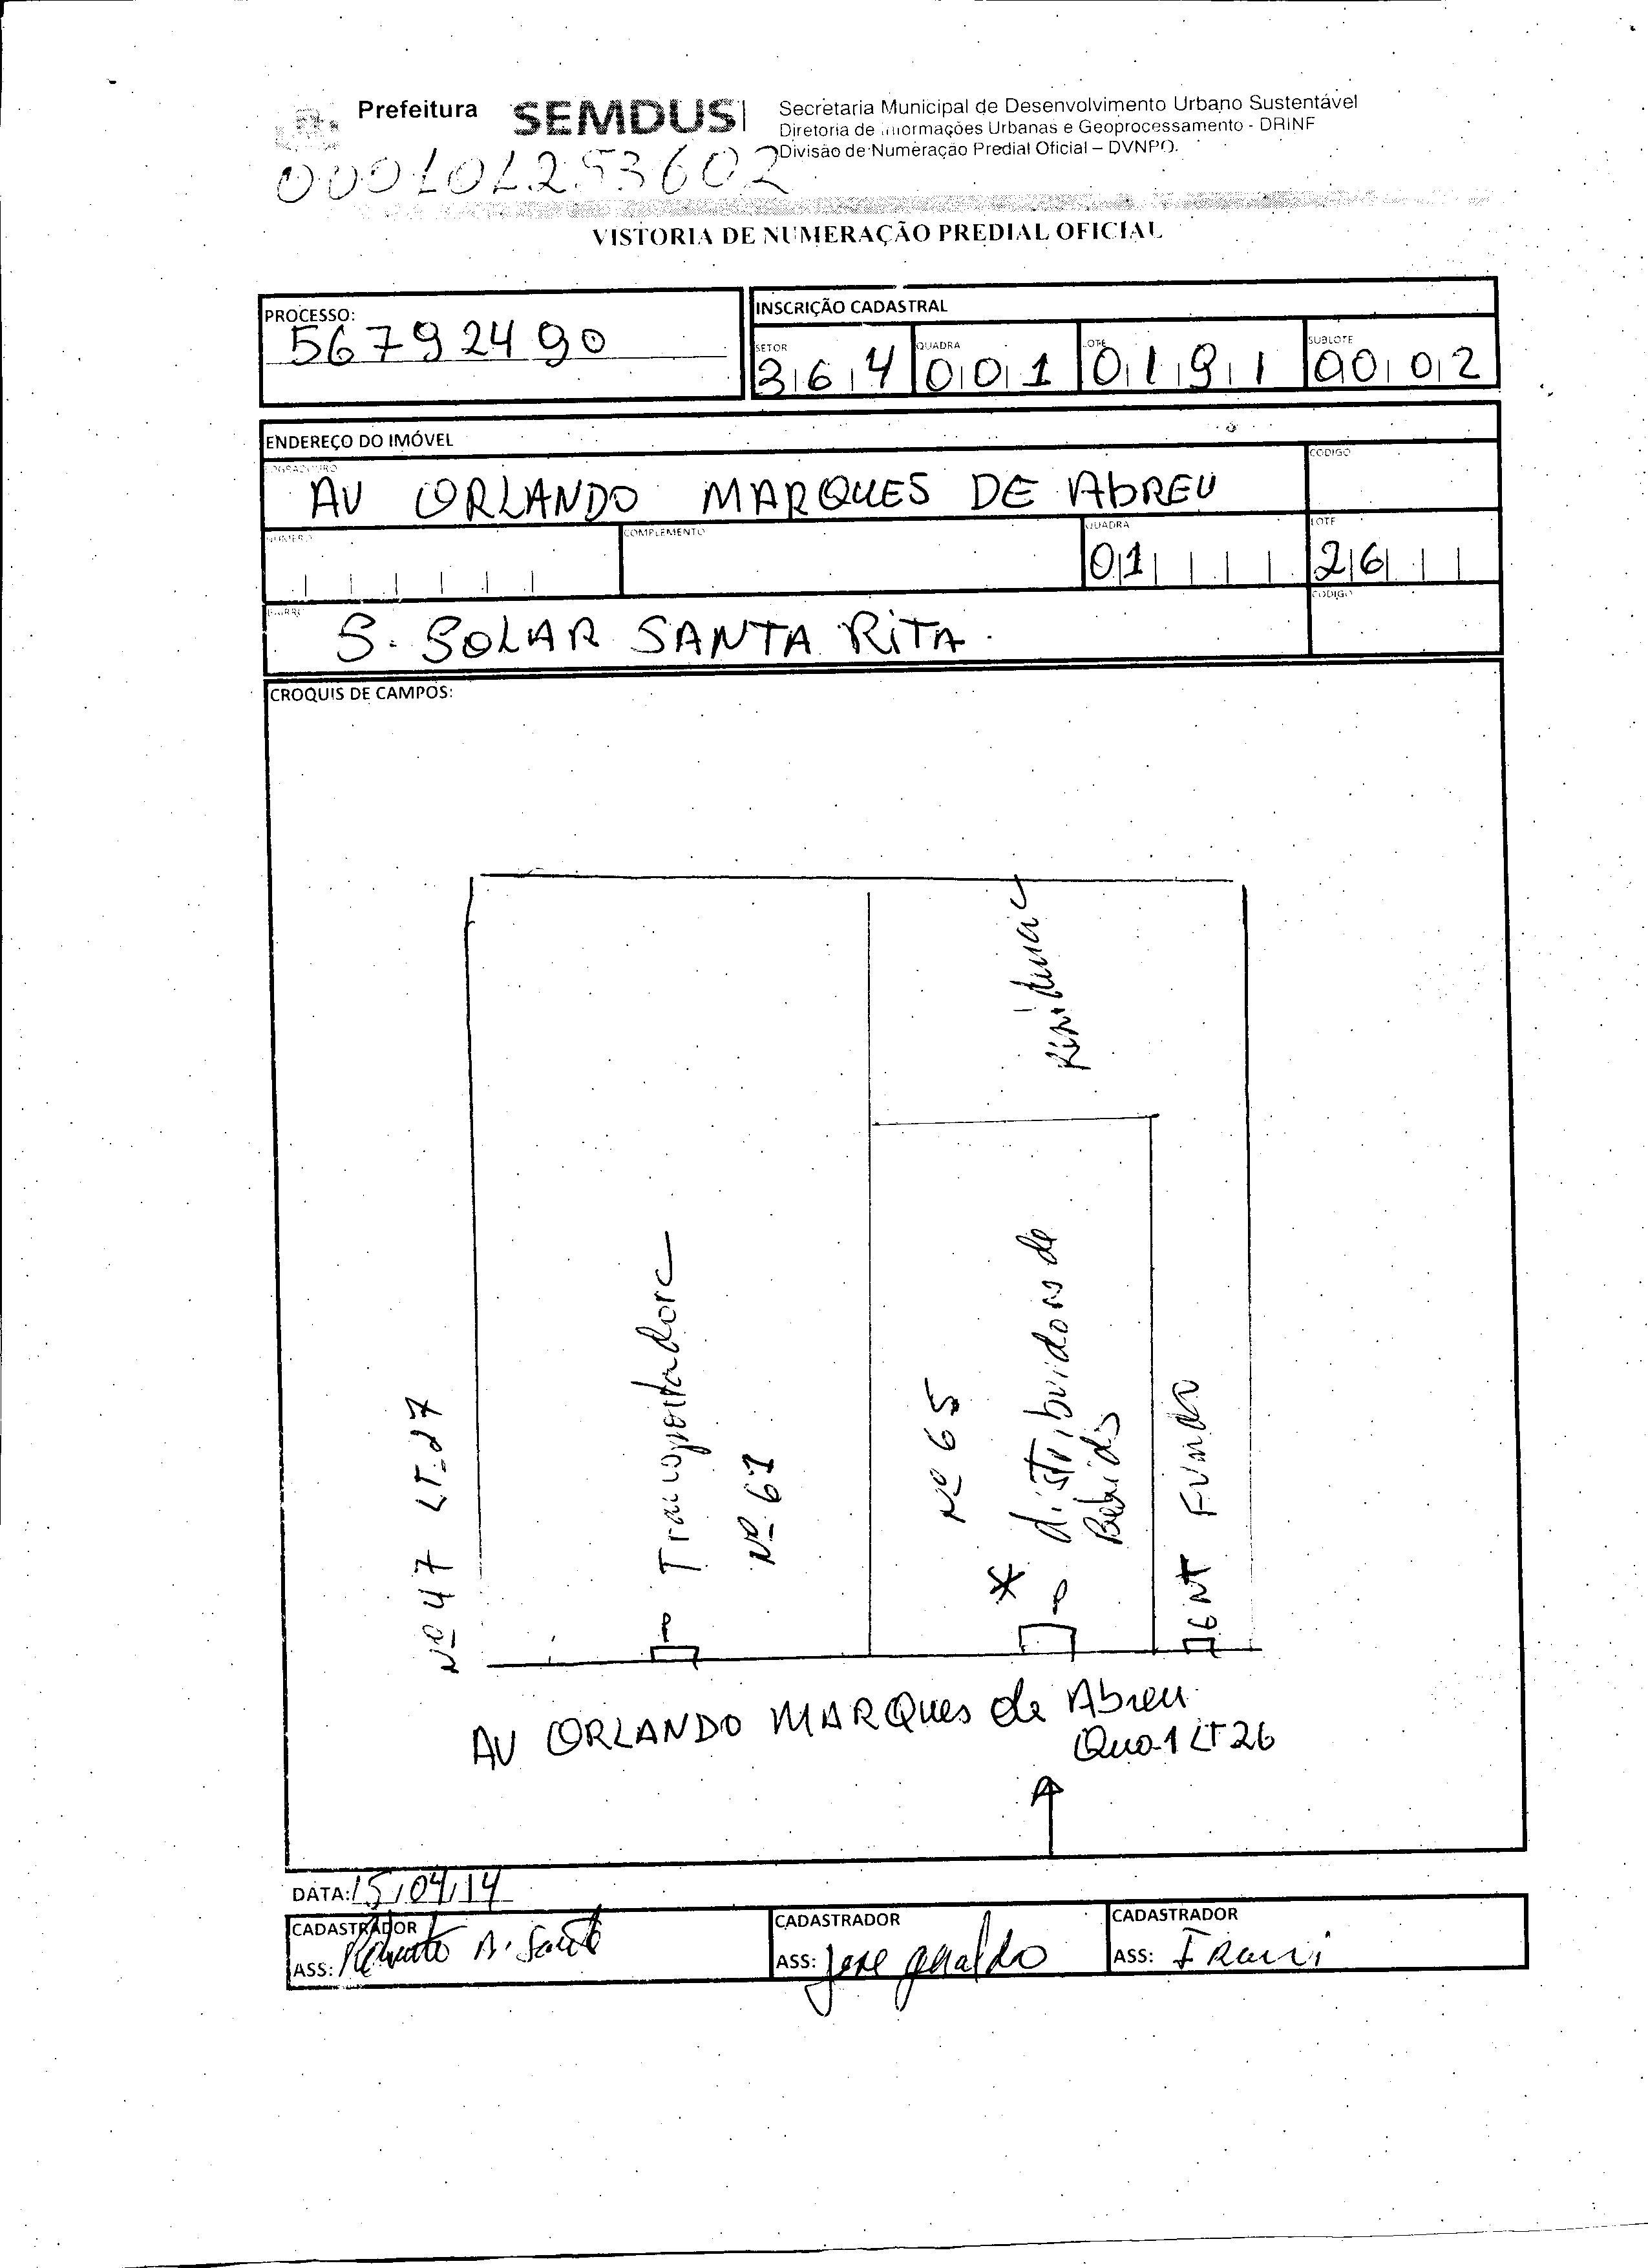 Prefeitura SEMDUS
Secretaria Municipal de Desenvolvimento Urbano Sustentável
Diretoria de Informações Urbanas e Geoprocessamento - DRINF
Divisão de Numeração Predial Oficial – DVNPO.
000101253602
VISTORIA DE NUMERAÇÃO PREDIAL OFICIAL
PROCESSO:
56792490
INSCRIÇÃO CADASTRAL
SETOR QUADRA LOTE SUBLOTE
364 001 0191 0002
ENDEREÇO DO IMÓVEL
LOGRADOURO CÓDIGO
AV ORLANDO MARQUES DE AbREU
NÚMERO COMPLEMENTO QUADRA LOTE
01 26
BAIRRO CÓDIGO
S. SOLAR SANTA RITA.
CROQUIS DE CAMPOS:
Nº 47 LT-27
Transportadora
Nº 61
Nº 65
* distribuidora de
Bebidas
ENT FUNDO
AV ORLANDO MARQues de Abreu
Qua-1 LT 26
DATA: 15/04/14
CADASTRADOR CADASTRADOR CADASTRADOR
ASS: Renato A. ASS: Jose geraldo ASS: